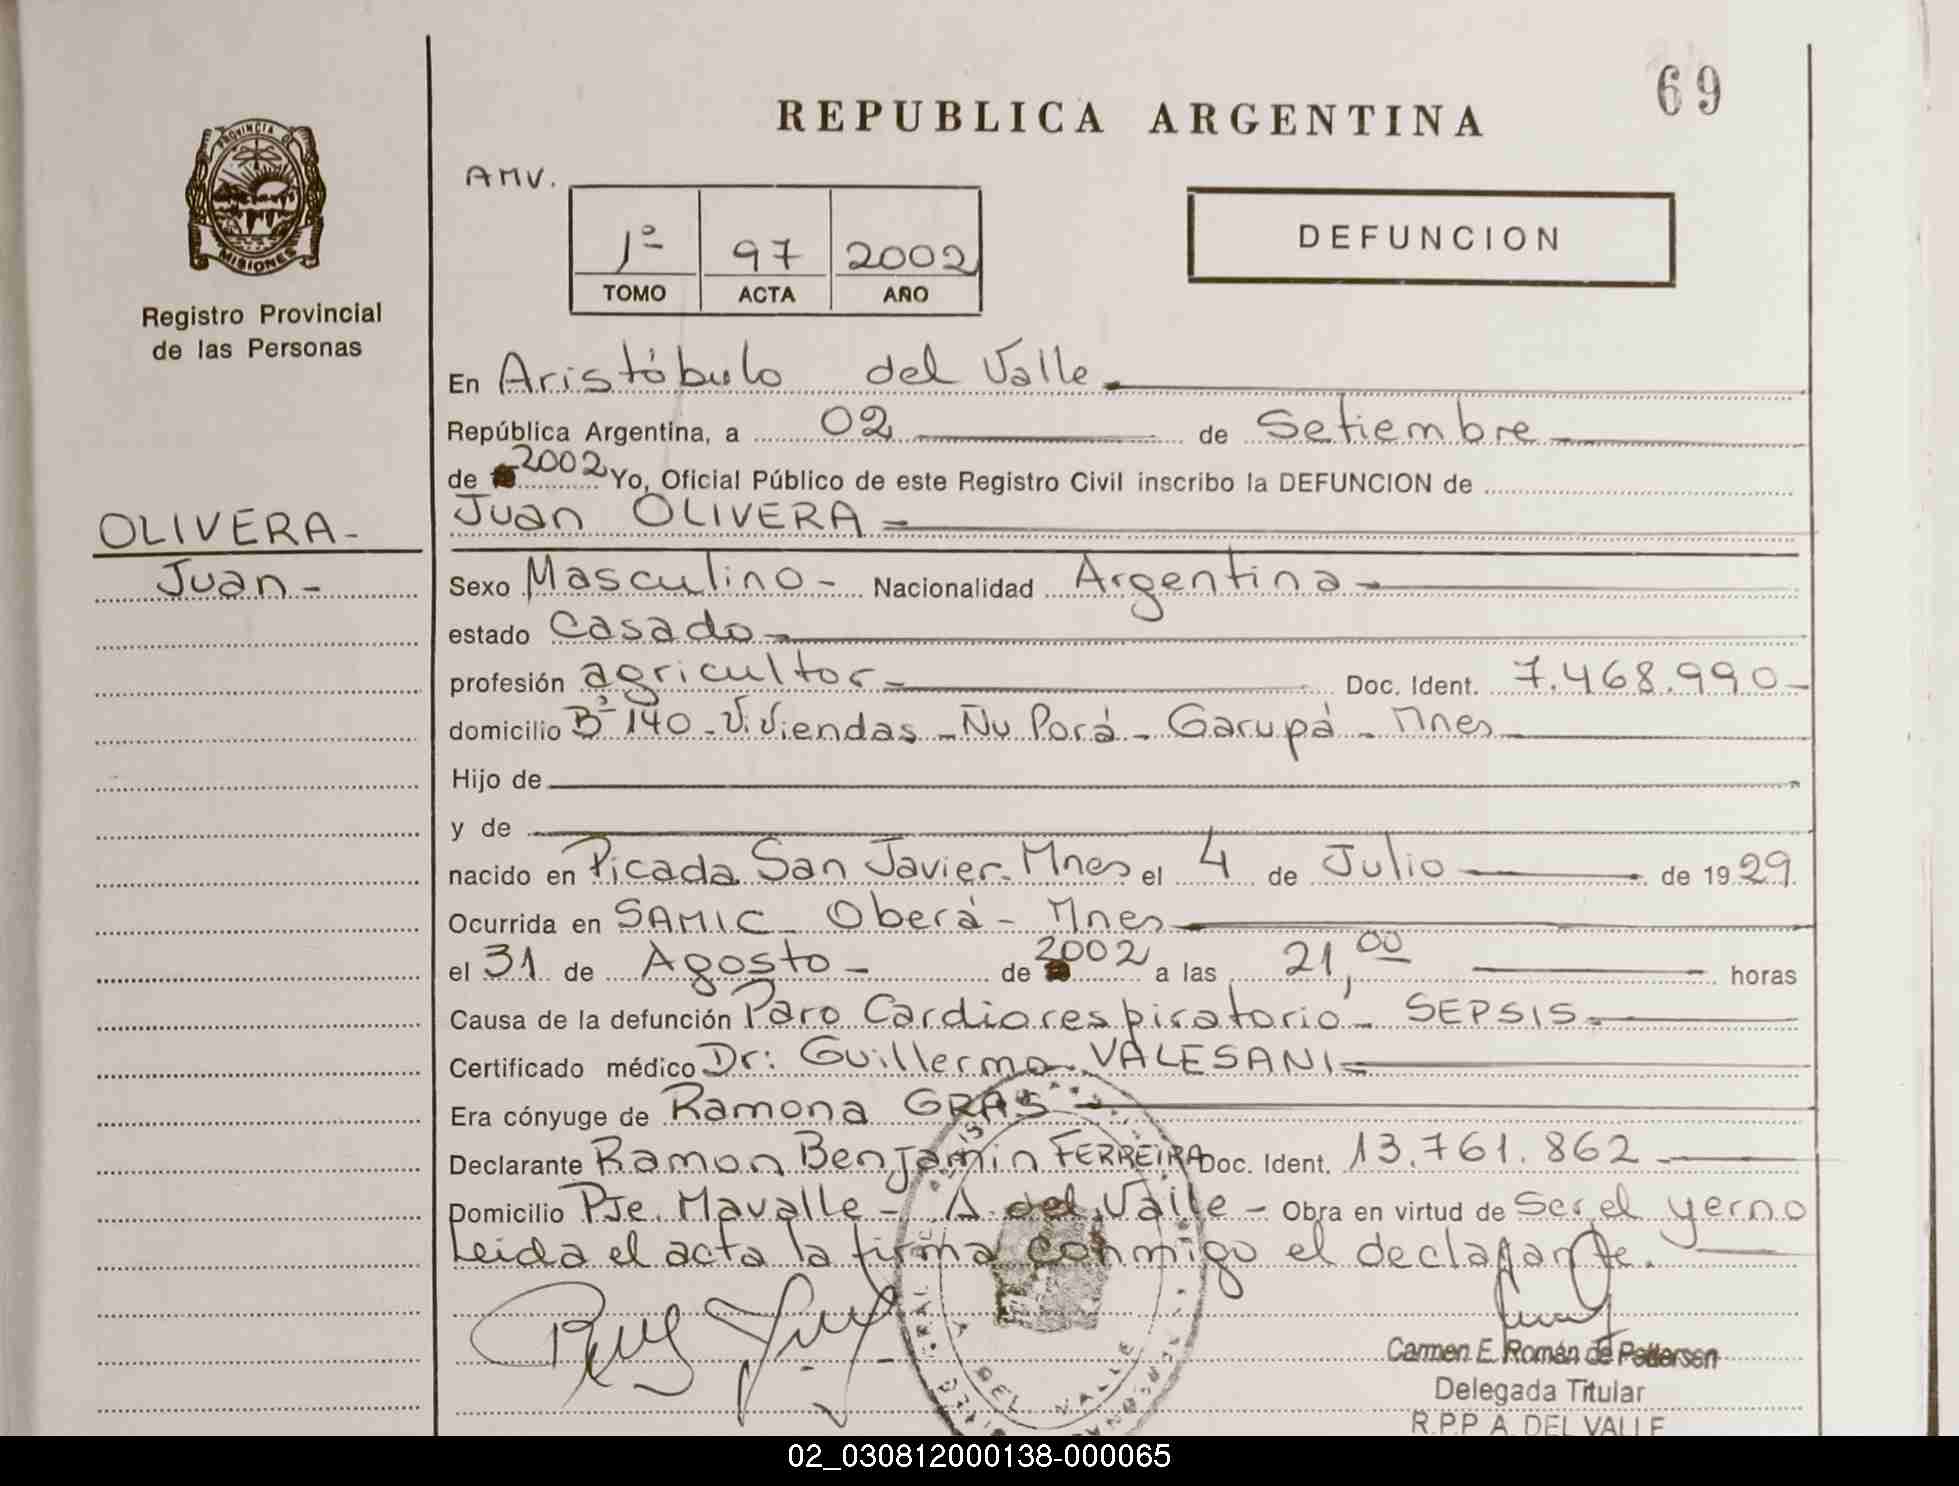 69
REPUBLICA ARGENTINA
PROVINCIA DE
MISIONES
Registro Provincial
de las Personas
AMV.
1º 97 2002
TOMO ACTA AÑO
DEFUNCION
OLIVERA-
Juan-
En Aristóbulo del Valle
República Argentina, a 02 de Setiembre
de 2002 Yo, Oficial Público de este Registro Civil inscribo la DEFUNCION de
Juan OLIVERA
Sexo Masculino- Nacionalidad Argentina-
estado Casado-
profesión agricultor- Doc. Ident. 7.468.990-
domicilio Bº 140-Viviendas-Ñu Porá-Garupá-Mnes
Hijo de
y de
nacido en Picada San Javier-Mnes el 4 de Julio de 1929.
Ocurrida en SAMIC Oberá- Mnes
el 31 de Agosto- de 2002 a las 21,00 horas
Causa de la defunción Paro Cardiorespiratorio- SEPSIS.
Certificado médico Dr: Guillermo VALESANI
Era cónyuge de Ramona GRAS
Declarante Ramon Benjamin FERREIRA Doc. Ident. 13.761.862
Domicilio Pje. Mavalle- A. del Valle- Obra en virtud de Ser el yerno
Leida el acta la firma conmigo el declarante.
DEL VALLE
Carmen E. Román de Pettersen
Delegada Titular
R.P.P A. DEL VALLE
02_030812000138-000065